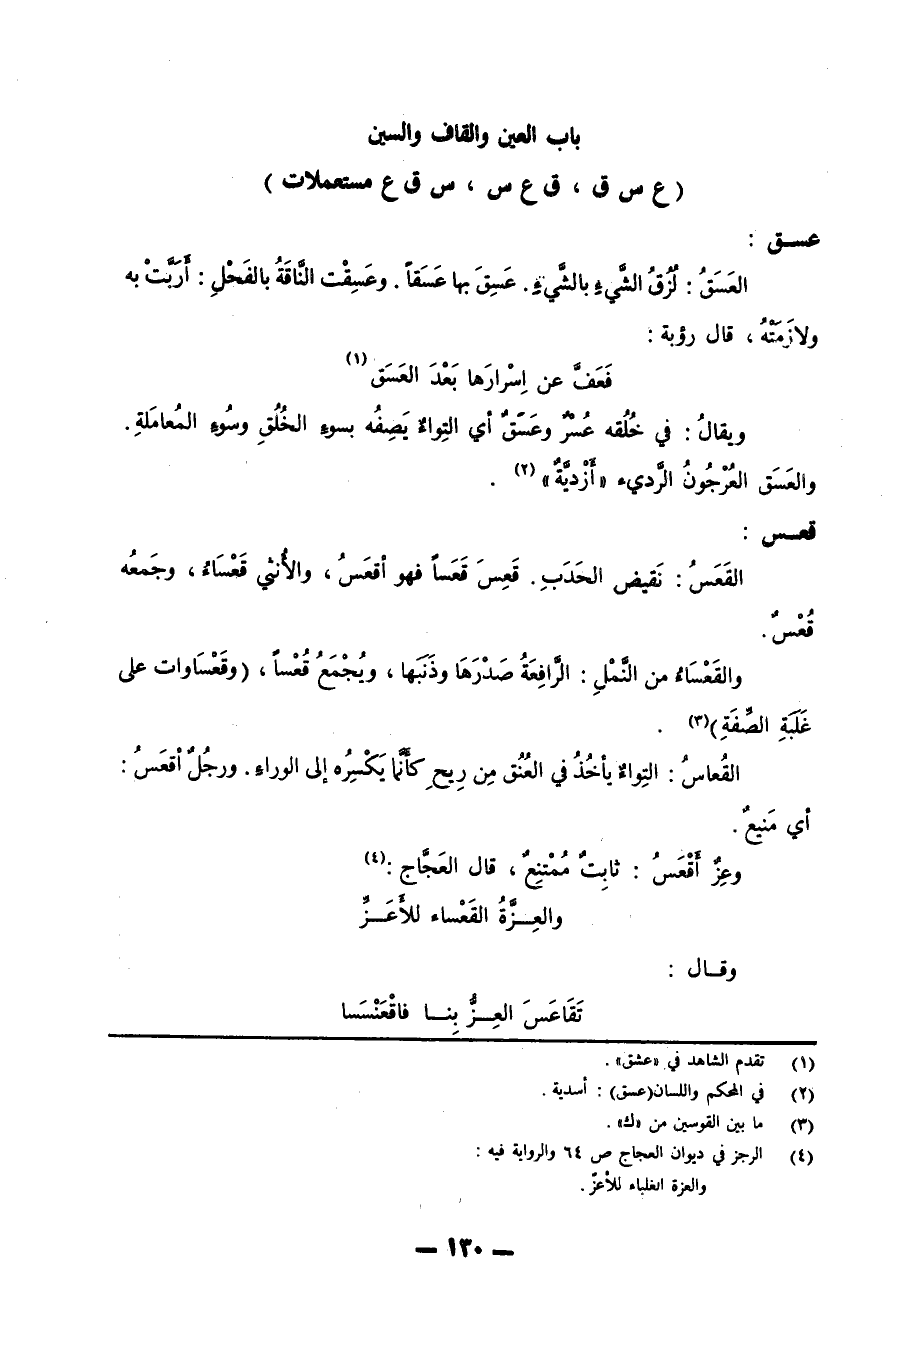 باب العين والقاف والسين
( ع س ق ، ق ع س ، س ق ع مستعملات )
عسـق :
العَسَقُ : لُزُقُ الشَّيءِ بالشَّيءِ. عَسِقَ بها عَسَقاً . وعَسِقْت النَّاقَةُ بالفَحْلِ : أَرَبَّتْ به
ولازَمَتْهُ ، قال رؤبة :
فَعَفَّ عن اِسْرارِها بَعْدَ العَسَق (١)
ويقالُ : في خُلُقه عُسْرٌ وعَسَقٌ أي التِواءٌ يَصِفُه بسوءِ الخُلُقِ وسُوءِ المُعامَلةِ .
والعَسَق العُرْجُونُ الرَّديء «أَزْديَّةٌ» (٢) .
قعـس :
القَعَسُ : نَقيض الحَدَبِ . قَعِسَ قَعَساً فهو أقعَسُ ، والأُنثي قَعْسَاءُ ، وجَمعُه
قُعْسٌ .
والقَعْسَاءُ من النَّمْلِ : الرَّافِعَةُ صَدْرَهَا وذَنَبَها ، ويُجْمَعُ قُعْساً ، (وقَعْسَاوات على
غَلَبَةِ الصِّفَةِ)(٣) .
القُعاسُ : التِواءٌ يأخُذُ في العُنُق مِن رِيحٍ كأَنَّما يَكْسِرُه إلى الوراءِ . ورجُلٌ أقعَسُ :
أي مَنيعٌ .
وعِزٌ أَقْعَسُ : ثابِتٌ مُمْتنِعٌ ، قال العَجَّاج :(٤)
والعِـزَّةُ القَعْساء للأَعَـزِّ
وقـال :
تَقَاعَسَ العِـزُّ بِنـا فاقْعَنْسَسا
(١) تقدم الشاهد في «عشق» .
(٢) في المحكم واللسان(عسق) : أسدية .
(٣) ما بين القوسين من «ك» .
(٤) الرجز في ديوان العجاج ص ٦٤ والرواية فيه :
والعزة الغلباء للأعزّ .
— ١٣٠ —